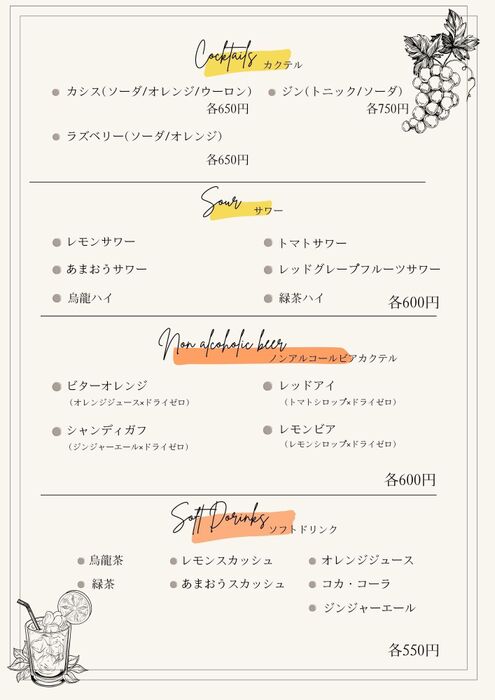 Cocktails カクテル
カシス(ソーダ/オレンジ/ウーロン)
各650円
ジン(トニック/ソーダ)
各750円
ラズベリー(ソーダ/オレンジ)
各650円
Sour サワー
レモンサワー
トマトサワー
あまおうサワー
レッドグレープフルーツサワー
烏龍ハイ
緑茶ハイ
各600円
Non alcoholic beer
ノンアルコールビアカクテル
ビターオレンジ
(オレンジジュース×ドライゼロ)
レッドアイ
(トマトシロップ×ドライゼロ)
シャンディガフ
(ジンジャーエール×ドライゼロ)
レモンビア
(レモンシロップ×ドライゼロ)
各600円
Soft Dorinks ソフトドリンク
烏龍茶
レモンスカッシュ
オレンジジュース
緑茶
あまおうスカッシュ
コカ・コーラ
ジンジャーエール
各550円